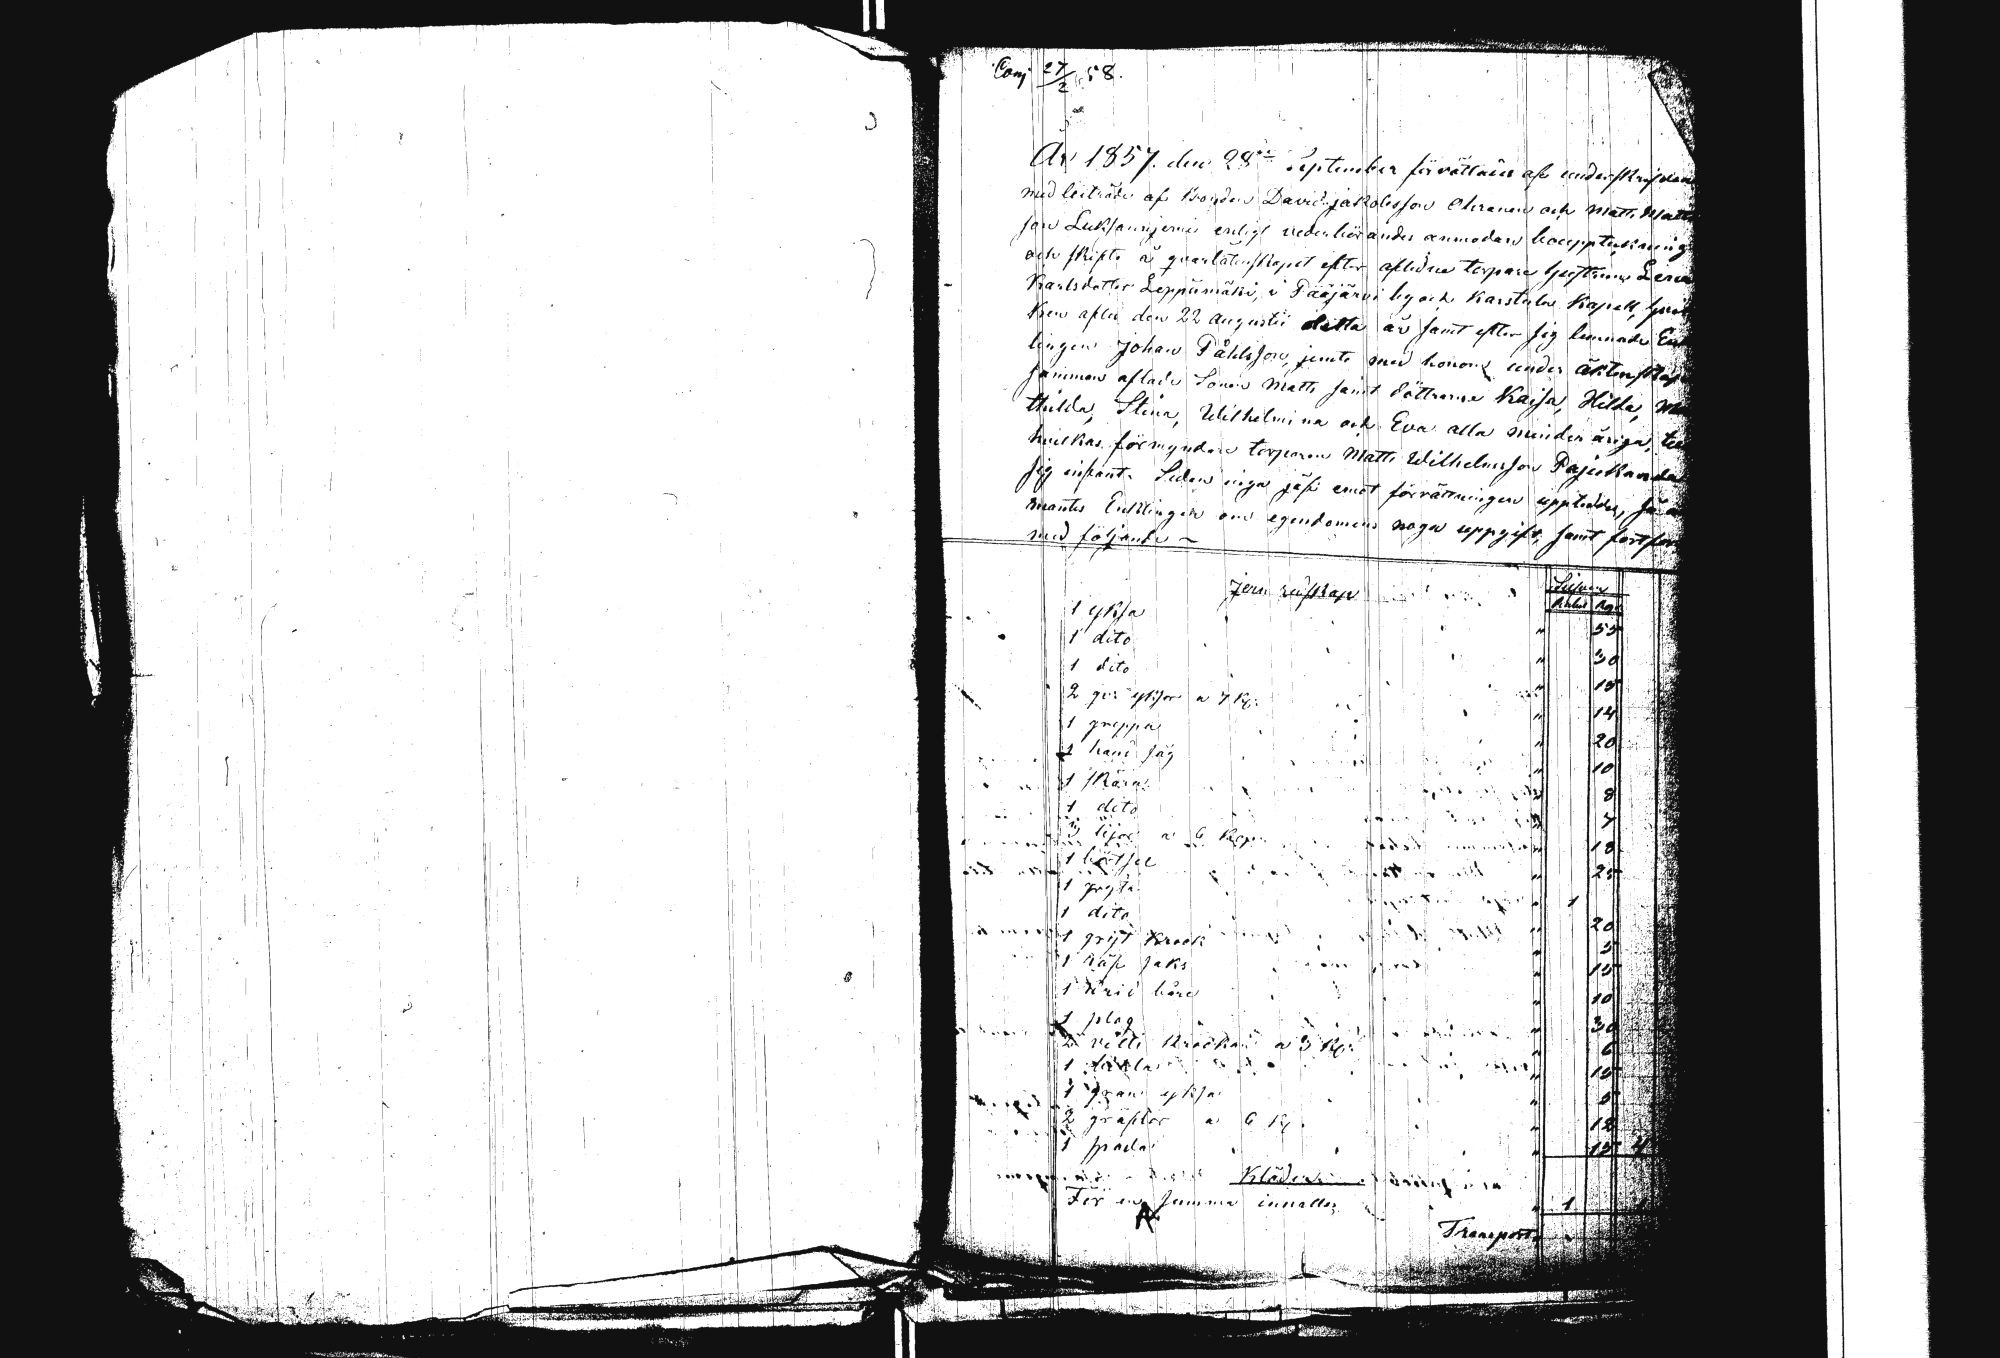 Conj 27/2 58.
År 1857. den 28de September förrättades af underskrifven
med biträde af bonden David Jakobsson Ohranen och Matts Matts
son enligt vederbörandes anmodan bouppteckning
och skifte å qvarlåtenskapet efter aflidne torpare hustrun Lena
Karlsdotter Leppämäki, i Pääjärvi by och Karstula Kapell,
ken afled den 22 Augusti detta år samt efter sig lemnade Enk
lingen Johan Påhlsson, jemte med honom under äktenskap
sammanaflade Sonen Matts samt döttrarne Kaisa, Hilda, Ma
thilda, Stina, Wilhelmina och Eva alla minderåriga, till
hvilkas förmyndare torparen Matts Wilhelmsson
sig infant. Sedan inga jäf emot förrättningen uppteddes, så an
mantes Enklingen om egendomens noga uppgift, samt fortfors
med följande ~
Jern redskap
Silfver
Rubel Kop
1 yksa " 55
1 dito " 30
1 dito " 15
2 yksor a 7 Kp. " 14
1 greppa " 20
1 hand såg " 10
1 skära " 8
1 dito " 7
3 lijor a 6 Kop " 18
1 " 25
1 gryta " 1
1 dito " 20
1 gryt krook " 5
1 saks " 15
1 " 10
1 plog " 30
2 krokar a 3 Kp. " 6
1 " 15
1 yksa " 5
2 gräftor a 6 Kp. " 12
1 spada " 15 4
Kläder
För en summa innalles " 1
Transport